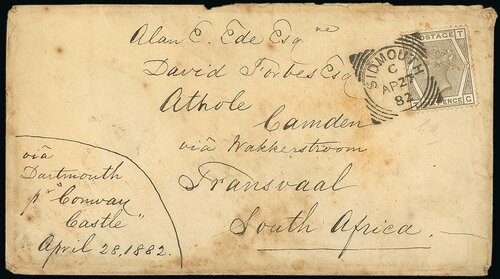 Alan E. Ede Esqre
David Forbes Esq
Athole
Camden
via Wakkerstroom
Transvaal
South Africa.
via
Dartmouth
pr "Conway
Castle"
April 28, 1882.
SIDMOUTH
C
AP 27
82
POSTAGE
T
PENCE
T C